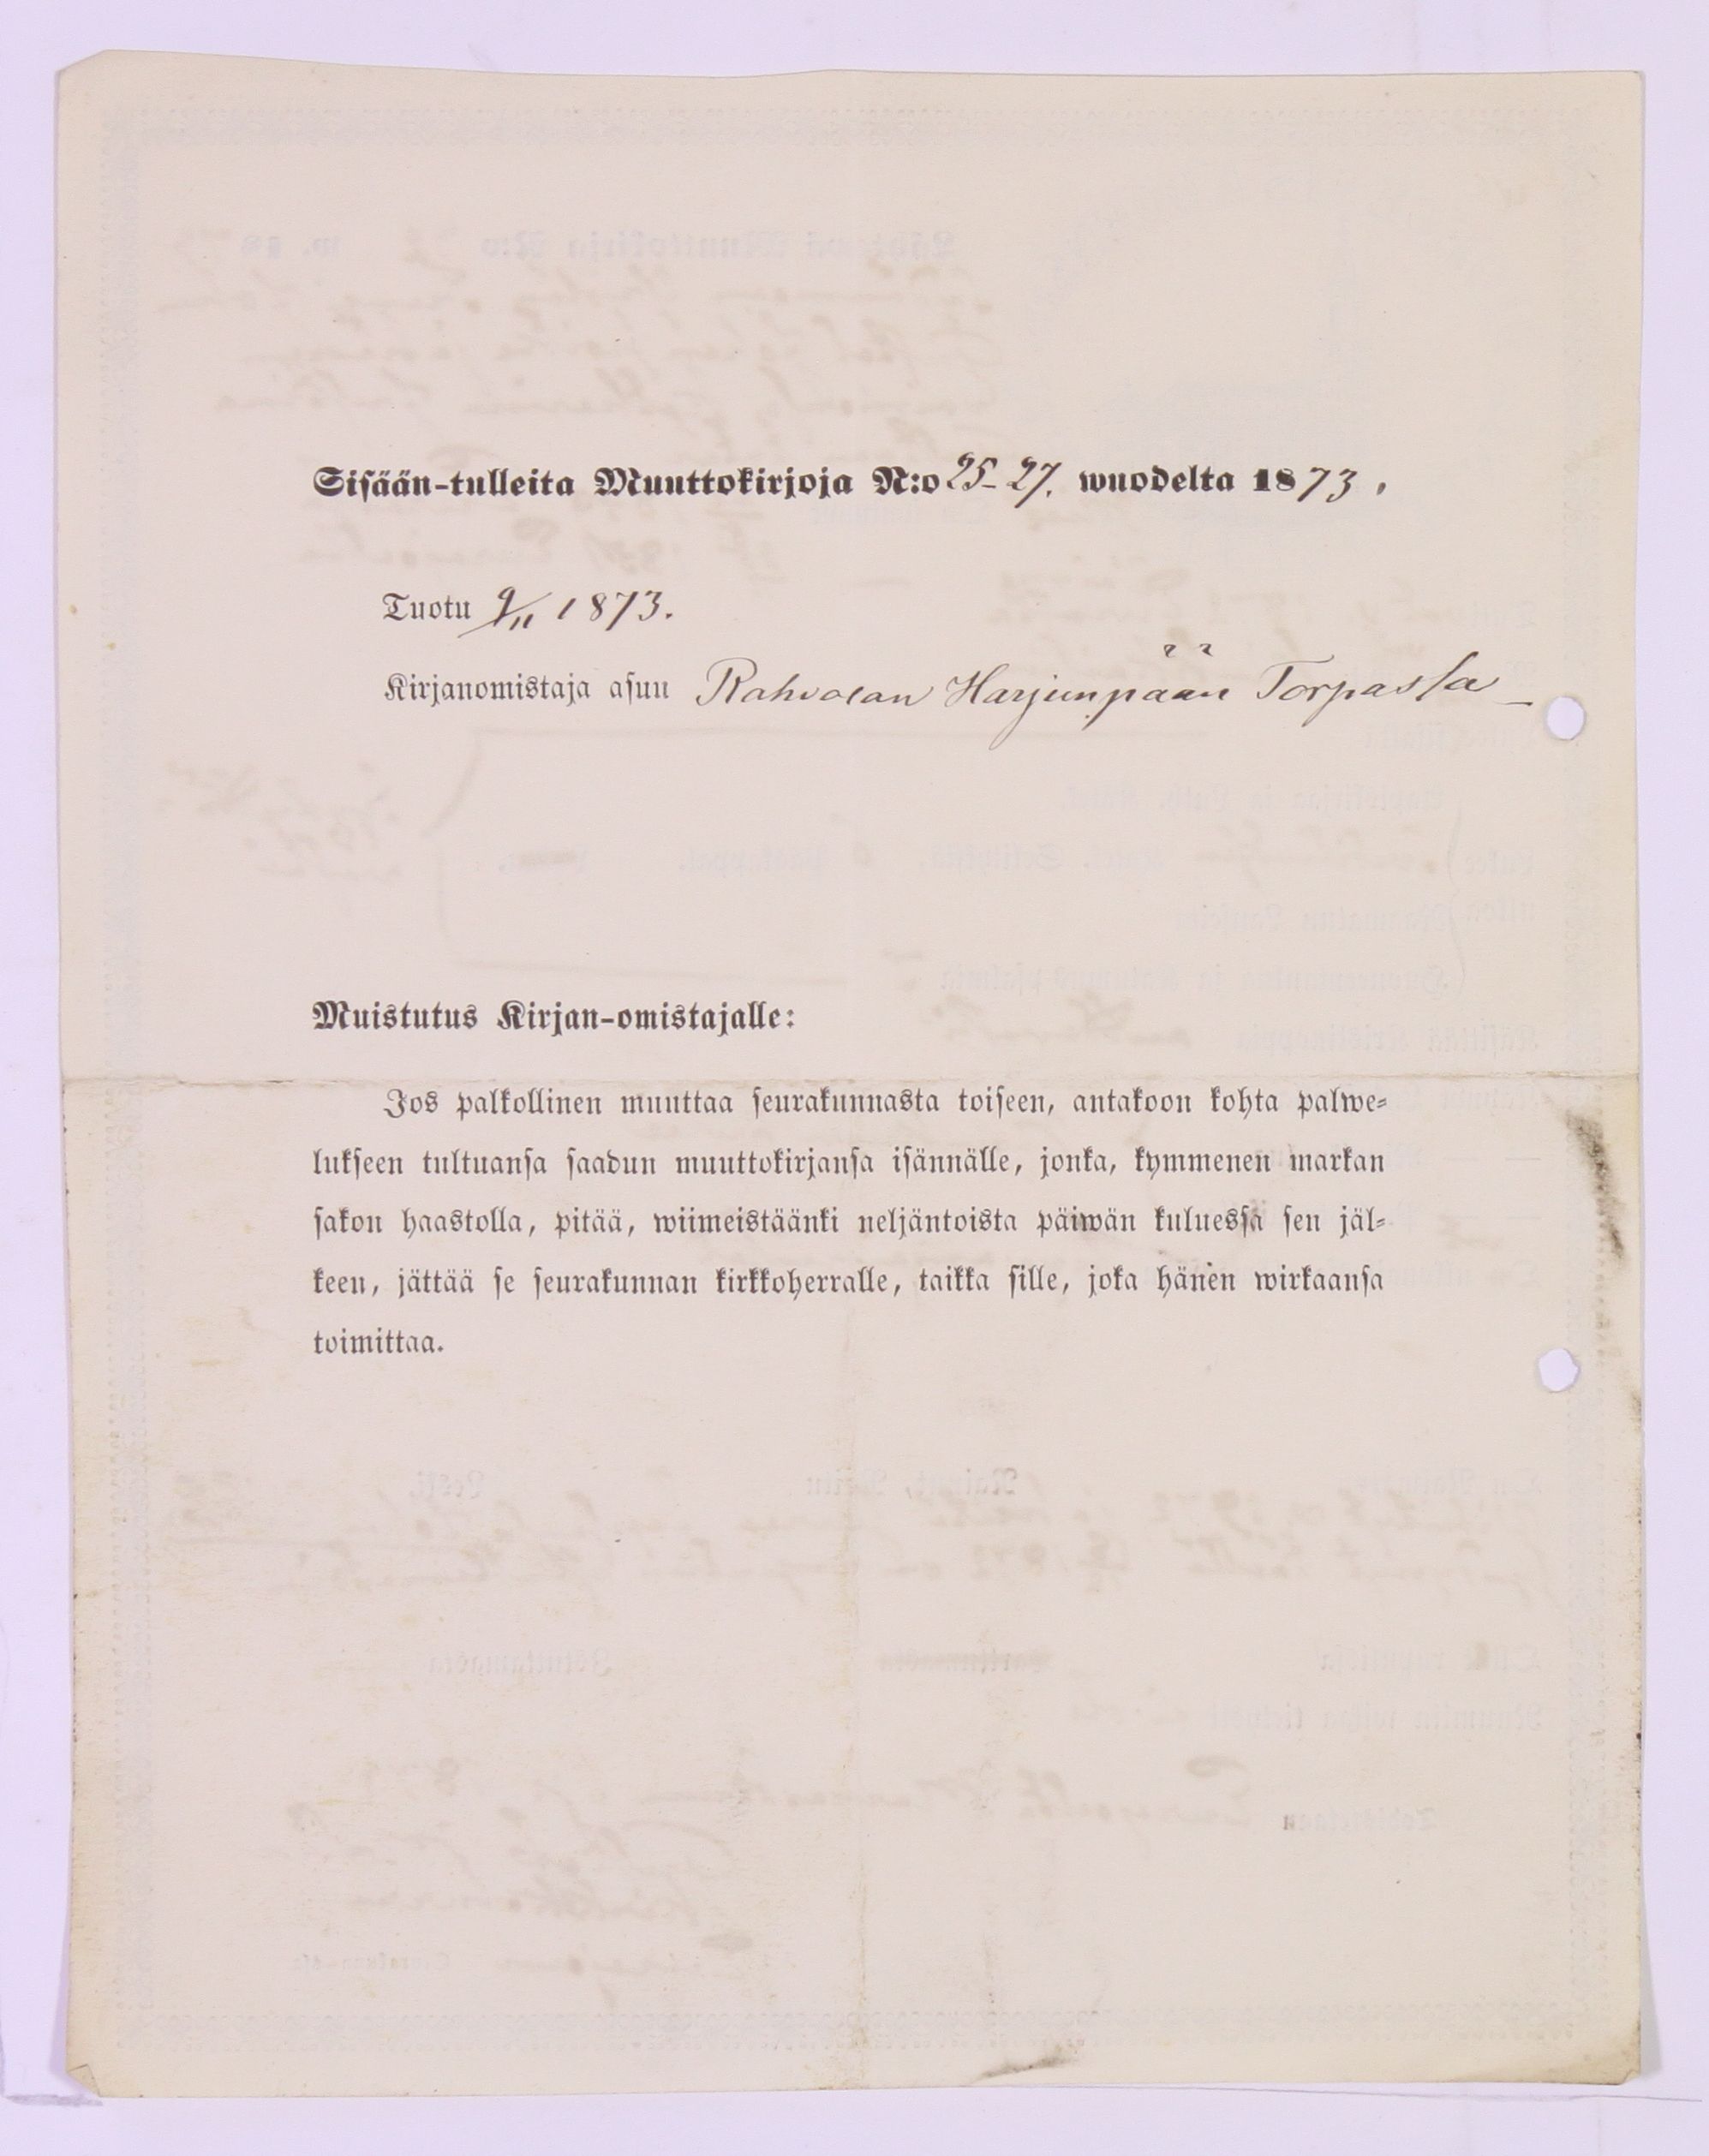 Sisään-tulleita Muuttokirjoja N:o 25-27. wuodelta 1873.
Tuotu 9/11 1873.
Kirjanomistaja asuu Rahvolan Harjunpään Torpassa
Muistutus Kirjan-omistajalle:
Jos palkollinen muuttaa seurakunnasta toiseen, antakoon kohta palwe-
lukseen tultuansa saadun muuttokirjansa isännälle, jonka, kymmenen markan
sakon haastolla, pitää, wiimeistäänki neljäntoista päiwän kuluessa sen jäl-
keen, jättää se seurakunnan kirkkoherralle, taikka sille, joka hänen wirkaansa
toimittaa.